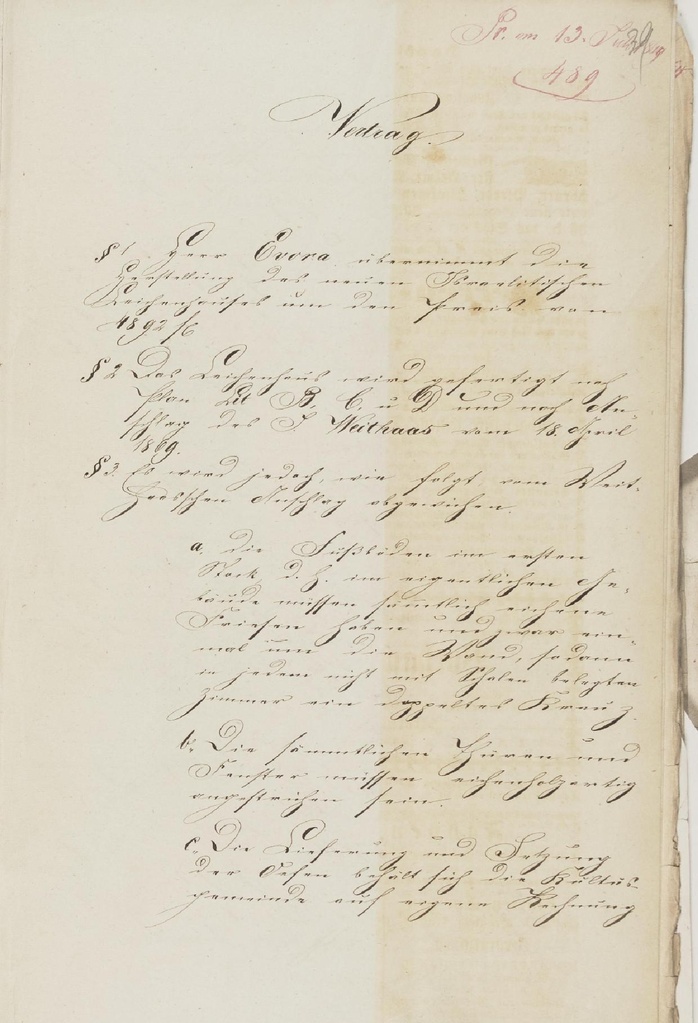 Pr. am 13. Juli
489
Vertrag.
§ 1. Herr Evora übernimmt die
Herstellung des neuen Israelitischen
Leichenhauses um den Preis von
4892 fl
§ 2 Das Leichenhaus wird gefertigt nach
Plan Litt B, C, u D und nach An-
schlag des J. Weithaas vom 18. April
1869.
§ 3. Es wird jedoch, wie folgt, vom Weit-
haasschen Anschlag abgewichen.
a. die Fußböden im ersten
Stock, d. h. im eigentlichen Ge-
bäude müssen sämtlich eichene
Friesen haben und zwar ein-
mal um die Wand, sodann
in jedem nicht mit Schalen belegten
Zimmer ein doppeltes Kreuz.
b. Die sämmtlichen Thüren und
Fenster müssen eichenholzartig
angestrichen sein.
c. Die Lieferung und Setzung
der Oefen behält sich die Kultus-
gemeinde auf eigene Rechnung